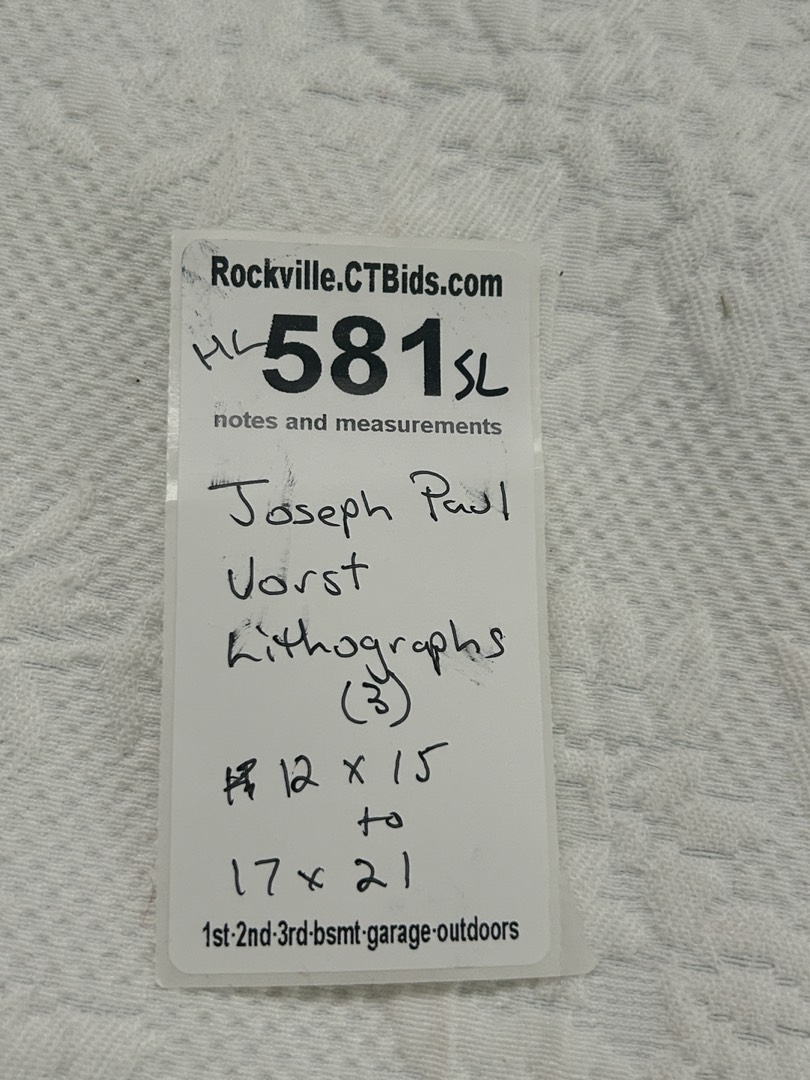 Rockville.CTBids.com
HL 581 SL
notes and measurements
Joseph Paul
Vorst
Lithographs
(3)
12 x 15
to
17 x 21
1st-2nd-3rd-bsmt-garage-outdoors